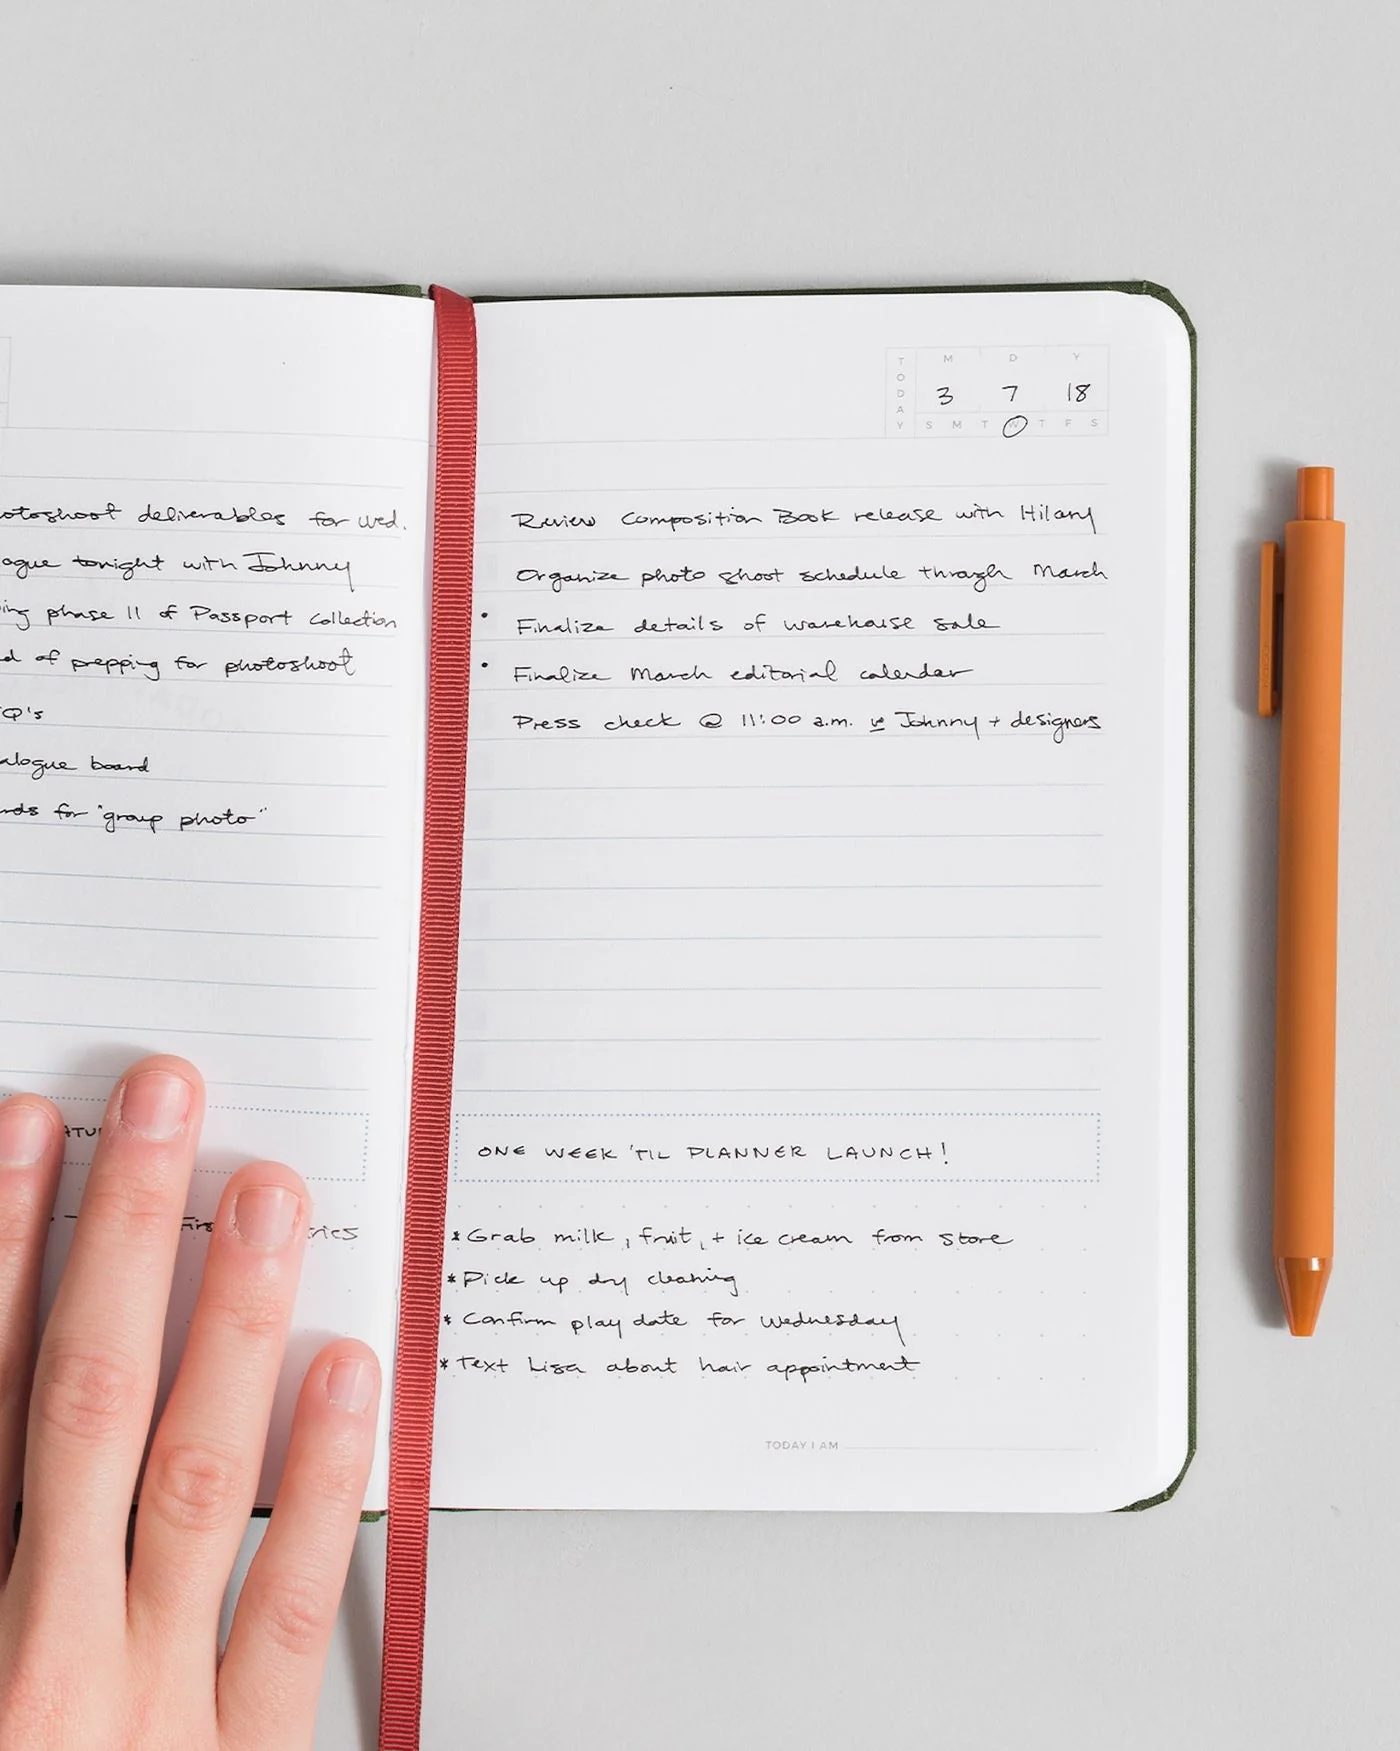 otoshoot deliverables for wed.
ogue tonight with Johnny
ing phase 11 of Passport Collection
d of prepping for photoshoot
Q's
alogue board
rds for "group photo"
ATU
Firs
ries
TODAY
M D Y
3 7 18
S M T W T F S
Review Composition Book release with Hilary
Organize photo shoot schedule through March
• Finalize details of warehouse sale
• Finalize March editorial calendar
Press check @ 11:00 a.m. w Johnny + designers
ONE WEEK 'TIL PLANNER LAUNCH!
* Grab milk, fruit, + ice cream from store
* Pick up dry cleaning
* Confirm play date for Wednesday
* Text Lisa about hair appointment
TODAY I AM